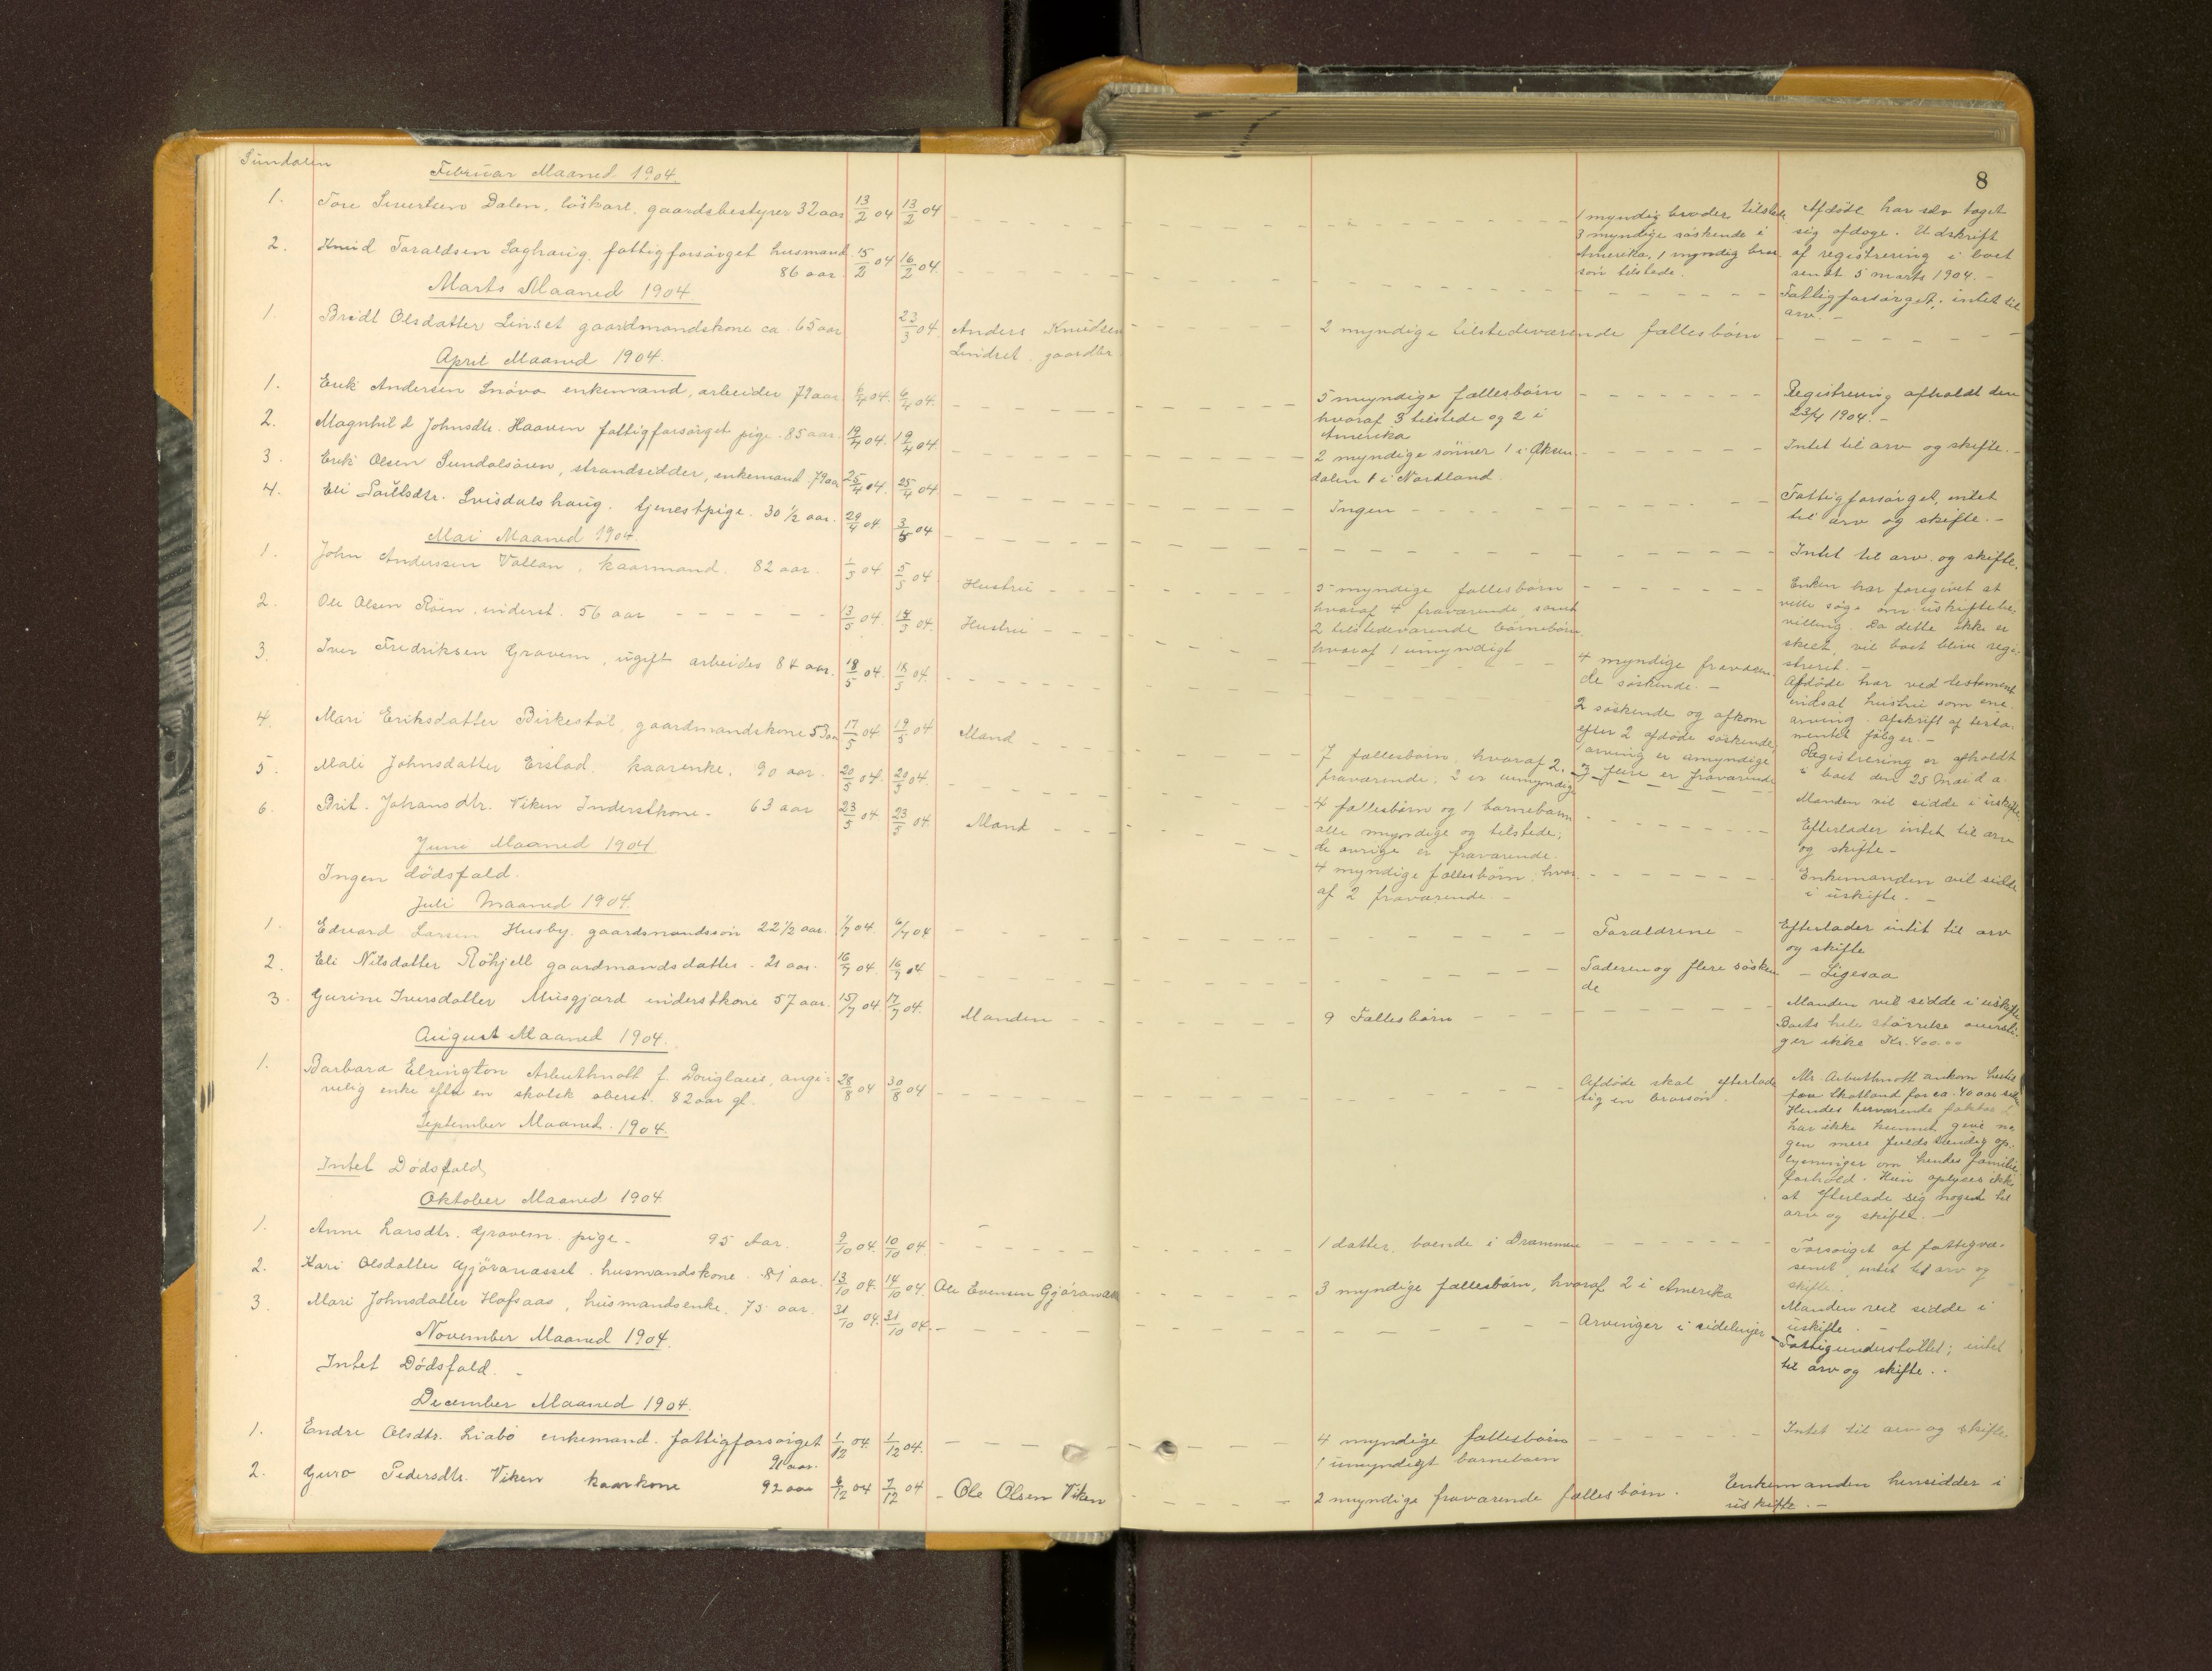 Sundalen
8
Februar Maaned 1904.
1. Tore Sivertsens Dalen, löskarl, gaardsbestyrer 32 aar 13/2 04 13/2 04 1 myndig broder tilstede
3 myndige söskende i
Amerika, 1 myndig bror-
sön tilstede.
Afdöde har selv taget
sig afdage. Udskrift
af registrering i boet
sendt 5 marts 1904. -
2. Knud Taraldsen Saghaug, fattigforsörget husmand
86 aar. 15/2 04 16/2 04. Fattigforsörget, intet til
arv. -
Marts Maaned 1904
1. Bredt Olsdatter Linset gaardmandskone ca. 65 aar 23/3 04. Anders Knudsen
Lindset gaardbr. 2 myndige tilstedeværende fællesbörn
April Maaned 1904.
1. Erik Andersen Snöva enkemand, arbeider 79 aar 6/4 04. 6/4 04. 5 myndige fællesbörn
hvoraf 3 tilstede og 2 i
Amerika
Registrering afholdt den
23/4 1904. -
2. Magnhild Johnsdtr. Haaven fattigforsörget pige. 85 aar. 19/4 04. 19/4 04. 2 myndige sönner 1 i Öksen-
dalen 1 i Nordland.
Intet til arv og skifte. -
3. Erik Olsen Sundalsören, strandsidder, enkemand 79 aar 25/4 04. 25/4 04. Ingen
Fattigforsörget, intet
til arv og skifte. -
4. Eli Paulsdtr. Svisdalshaug. tjenestpige. 30 1/2 aar. 29/4 04. 3/5 04 Intet til arv og skifte.
Mai Maaned 1904.
1. John Anderssen Vollan, kaarmand. 82 aar. 1/5 04 5/5 04 Hustru 5 myndige fællesbörn
hvoraf 4 fraværende, samt
2 tilstedeværende börnebörn
hvoraf 1 umyndigt
Enken har foregivet at
ville söge om uskiftebe-
villing. Da dette ikke er
skeet, vil boet blive regi-
streret. -
2. Ole Olsen Röen. inderst. 56 aar 13/5 04. 14/5 04. Hustru 4 myndige fraværen-
de söskende. -
Afdöde har ved testament
indsat hustru som ene-
arving. Afskrift af testa-
mentet fölger. -
3. Iver Fredriksen Gravem, ugift arbeider 84 aar. 18/5 04. 18/5 04. 2 söskende og afkom
efter 2 afdöde söskende,
1 arving er umyndige
3 flere er fraværende
Registrering er afholdt
i boet den 25 Mai d.a.
4. Mari Eriksdatter Birkestöl, gaardmandskone 53 aar 17/5 04 19/5 04 Mand 7 fællesbörn, hvoraf 2
fraværende, 2 er umyndige
Manden vil sidde i uskifte
5. Mali Johnsdatter Erstad. kaarenke. 90 aar. 20/5 04. 20/5 04. 4 fællesbörn og 1 barnebarn
alle myndige og tilstede;
de övrige er fraværende.
Efterlader intet til arv
og skifte -
6. Brit Johansdtr. Viken Inderstkone. 63 aar 23/5 04. 23/5 04. Mand 4 myndige fællesbörn, hvor-
af 2 fraværende. -
Enkemanden vil sidde
i uskifte. -
Juni Maaned 1904
Ingen dödsfald.
Juli Maaned 1904.
1. Edvard Larsen Husby. gaardmandssön 22 1/2 aar. 1/7 04. 6/7 04 Foraldrene Efterlader intet til arv
og skifte
2. Eli Nilsdatter Röhjell gaardmandsdatter. 21 aar. 16/7 04. 16/7 04 Faderen og flere sösken
de - Ligesaa
3. Gurine Iversdatter Musgjærd inderstkone 57 aar. 15/7 04. 17/7 04. Manden 9 Fællesbörn Manden vil sidde i uskifte
Boets hele störrelse oversti-
ger ikke Kr. 400.00
August Maaned 1904.
1. Barbara Elrington Arbuthnott f. Douglass, angi-
velig enke efter en skotsk oberst. 82 aar gl. 28/8 04 30/8 04 Afdöde skal efterlade
sig en brorsön.
Mr. Arbuthnott ankom hertil
fra Skotland for ca. 40 aar siden
Hendes herværende
har ikke kunnet give no
gen mere fuldstændig op-
lysninger om hendes familie
forhold. Hun oplyses ikke
at efterlade sig noget til
arv og skifte. -
September Maaned. 1904.
Intet Dödsfald,
Oktober Maaned 1904
1. Anne Larsdtr. Gravem. pige. 95 Aar. 9/10 04. 10/10 04. 1 datter, boende i Drammen Forsörget af fattigvæ-
senet, intet til arv og
skifte.
2. Kari Olsdatter Gjöranæsset. husmandskone. 81 aar. 13/10 04. 14/10 04. Ole Evensen Gjöranæs 3 myndige fællesbörn, hvoraf 2 i Amerika Manden vil sidde i
uskifte. -
3. Mari Johnsdatter Hafsaas, husmandsenke, 75 aar. 31/10 04. 31/10 04. Arvinger i sidelinjer Fattigunderstöttet; intet
til arv og skifte. .
November Maaned 1904.
Intet Dödsfald. -
December Maaned 1904.
1. Endre Olsdtr. Liabö enkemand. fattigforsörget
91 aar. 1/12 04. 1/12 04. 4 myndige fællesbörn
1 umyndigt barnebarn
Intet til arv og skifte
2. Guro Pedersdtr. Viken kaarkone 92 aar 6/12 04 7/12 04 - Ole Olsen Viken 2 myndige fraværende fællesbörn. Enkemanden hensidder i
uskifte. -